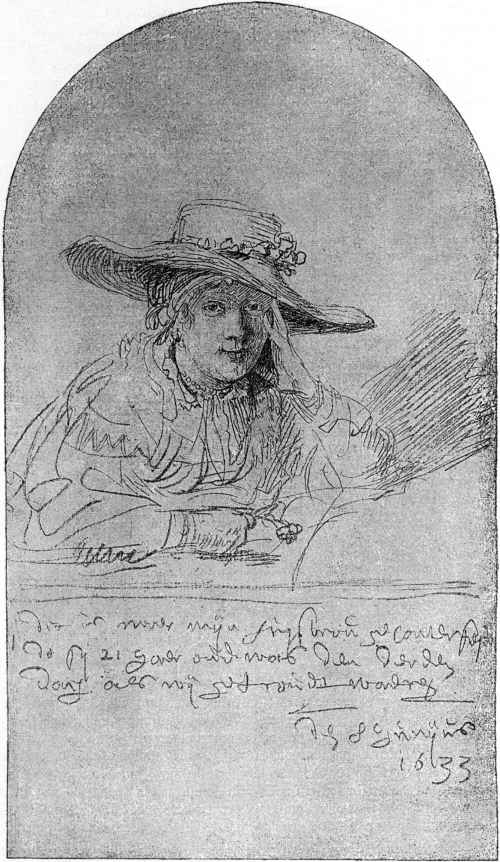 dit is naer mijn huysvrou geconterfeyt
do sy 21 jaer oud was den derden
dach als wij getroudt waeren
den 8 junijus
1633